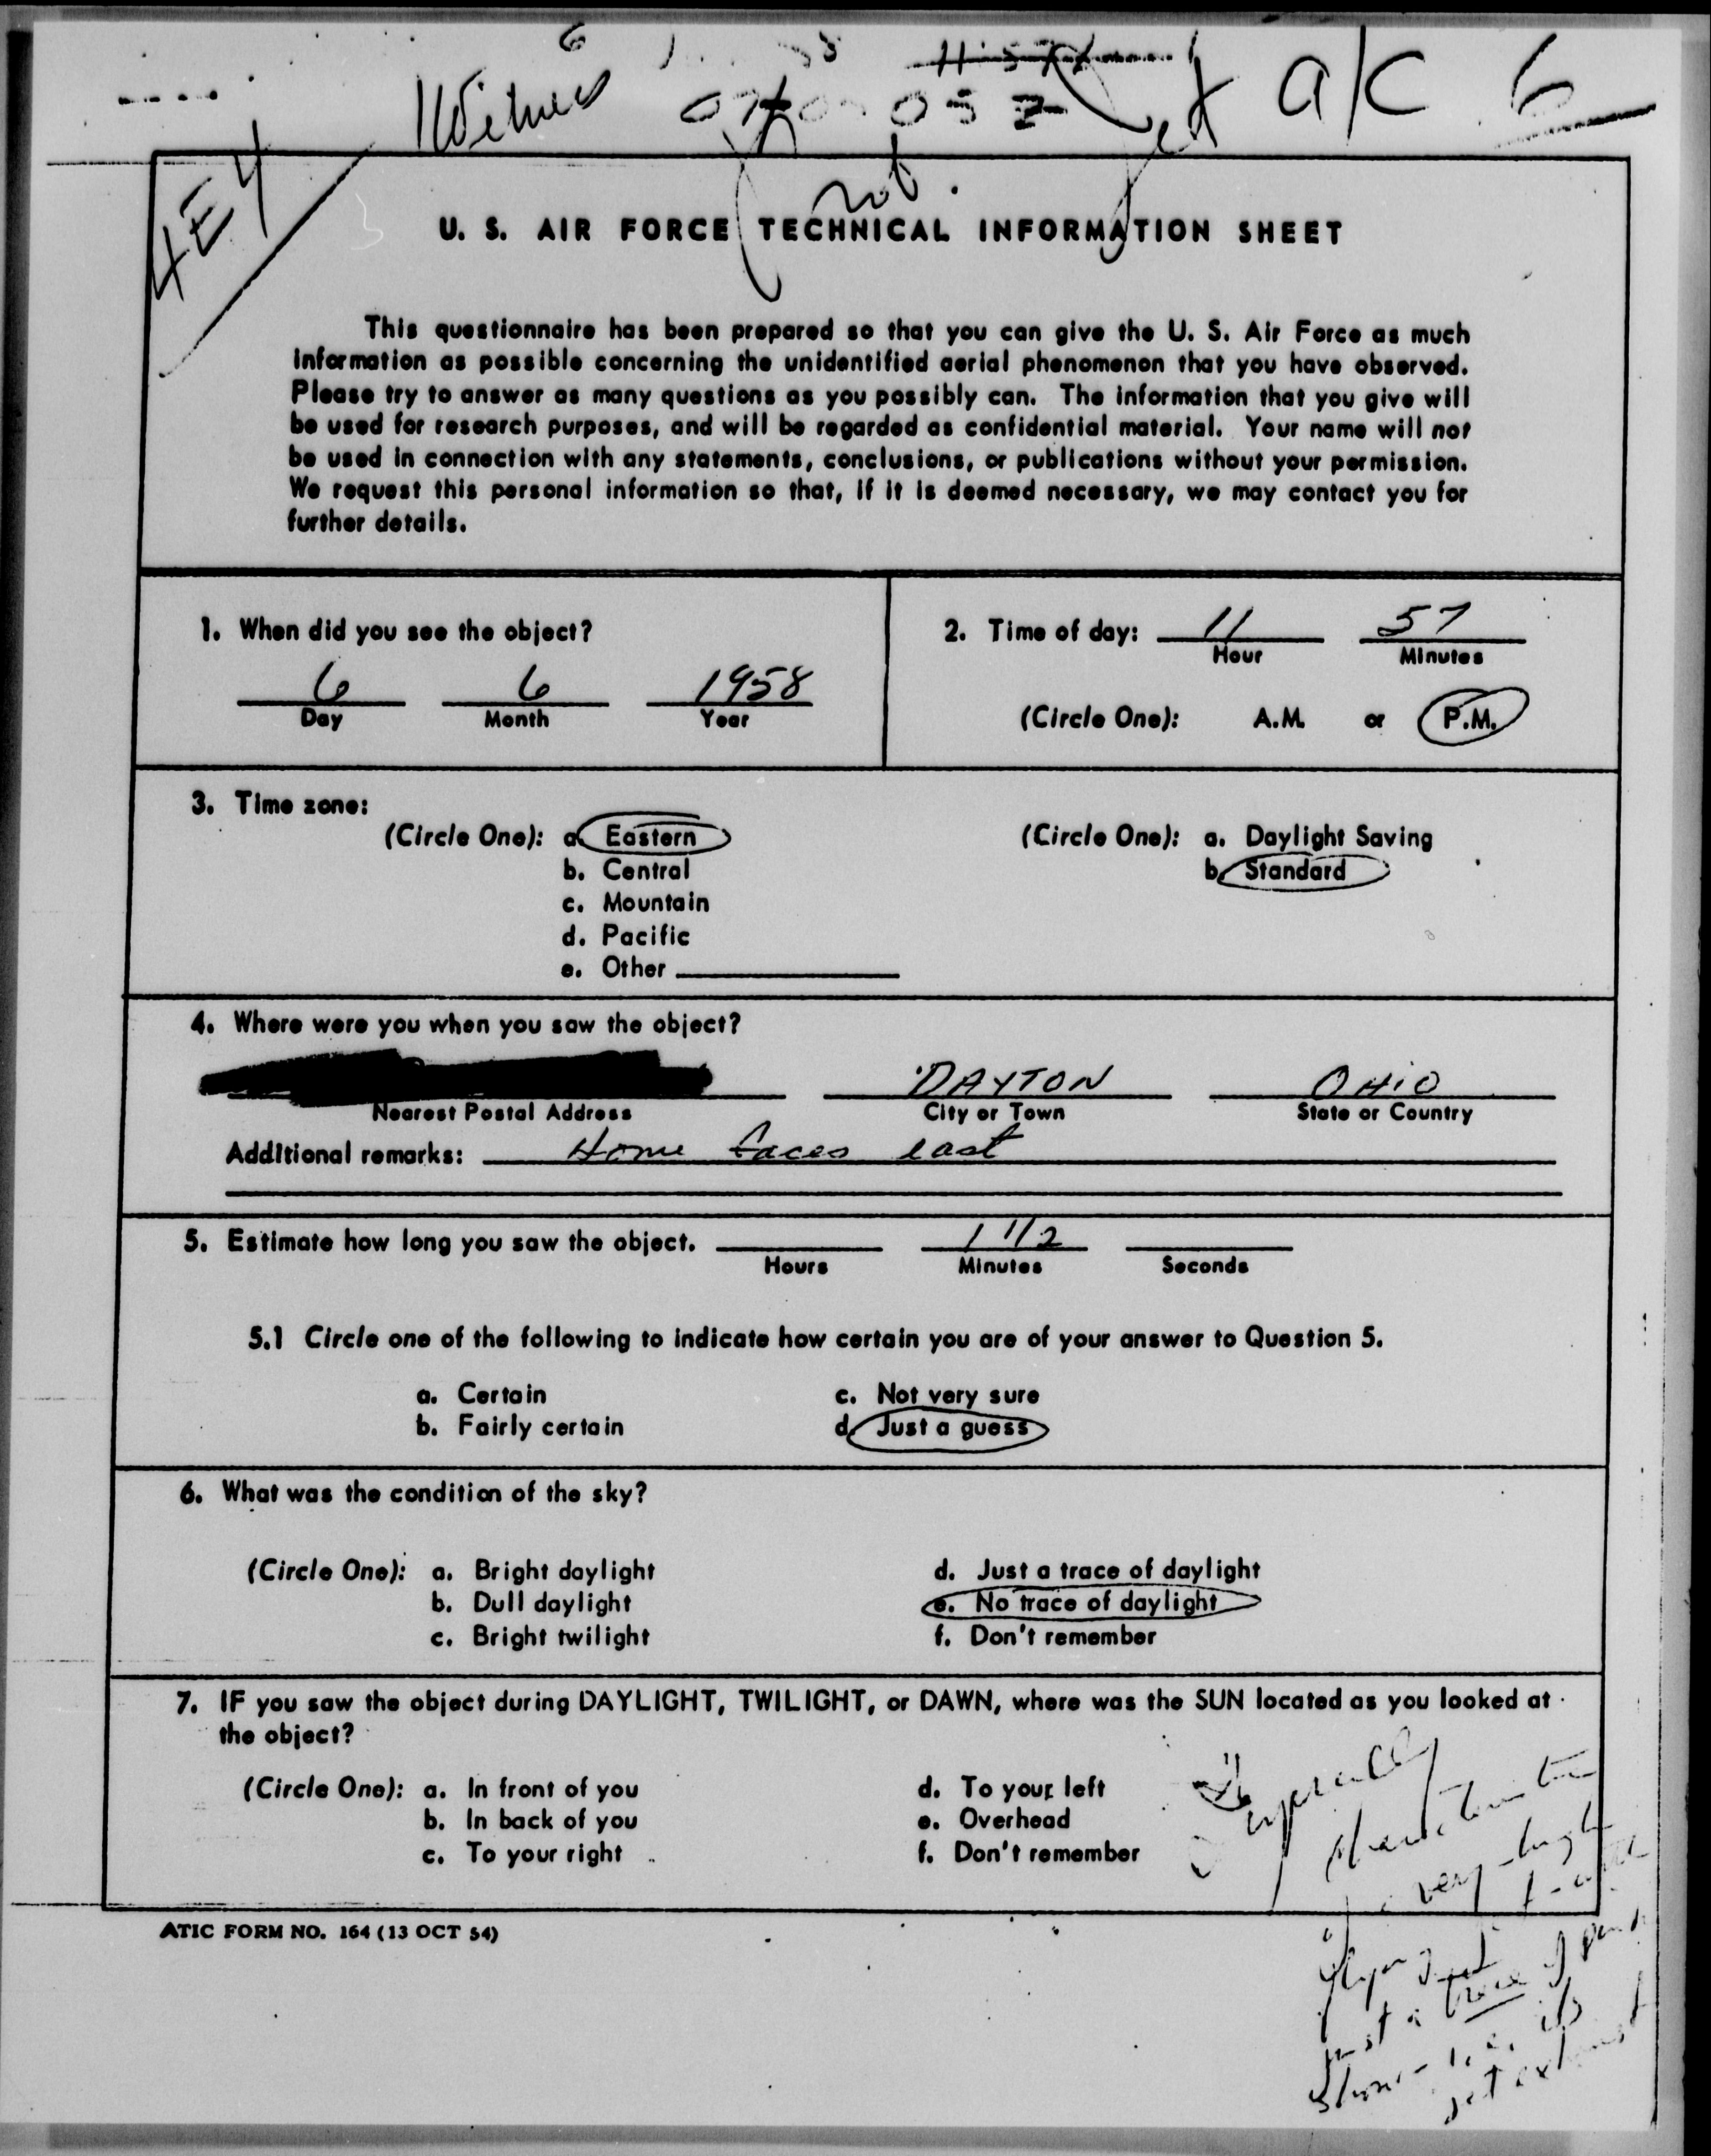 6
Witness
Jet a/c 6
4E4
U. S. AIR FORCE TECHNICAL INFORMATION SHEET
This questionnaire has been prepared so that you can give the U. S. Air Force as much
information as possible concerning the unidentified aerial phenomenon that you have observed.
Please try to answer as many questions as you possibly can. The information that you give will
be used for research purposes, and will be regarded as confidential material. Your name will not
be used in connection with any statements, conclusions, or publications without your permission.
We request this personal information so that, if it is deemed necessary, we may contact you for
further details.
1. When did you see the object?
6 6 1958
Day Month Year
2. Time of day: 11 57
Hour Minutes
(Circle One): A.M. or P.M.
3. Time zone:
(Circle One): a. Eastern
b. Central
c. Mountain
d. Pacific
e. Other
(Circle One): a. Daylight Saving
b. Standard
4. Where were you when you saw the object?
DAYTON OHIO
Nearest Postal Address City or Town State or Country
Additional remarks: Home faces east
5. Estimate how long you saw the object. 1 1/2
Hours Minutes Seconds
5.1 Circle one of the following to indicate how certain you are of your answer to Question 5.
a. Certain c. Not very sure
b. Fairly certain d. Just a guess
6. What was the condition of the sky?
(Circle One): a. Bright daylight d. Just a trace of daylight
b. Dull daylight e. No trace of daylight
c. Bright twilight f. Don't remember
7. IF you saw the object during DAYLIGHT, TWILIGHT, or DAWN, where was the SUN located as you looked at
the object?
(Circle One): a. In front of you d. To your left
b. In back of you e. Overhead
c. To your right f. Don't remember
very high
just a trace of
jet exhaust
ATIC FORM NO. 164 (13 OCT 54)